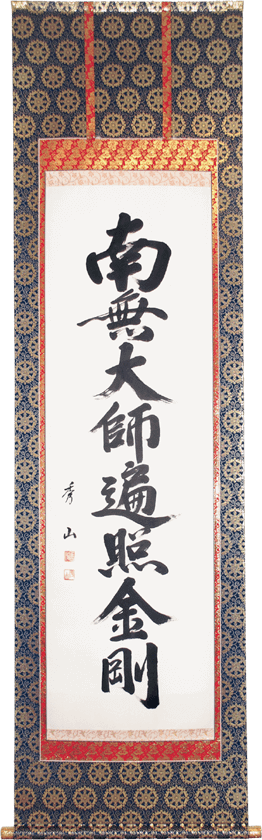 南無大師遍照金剛
秀山